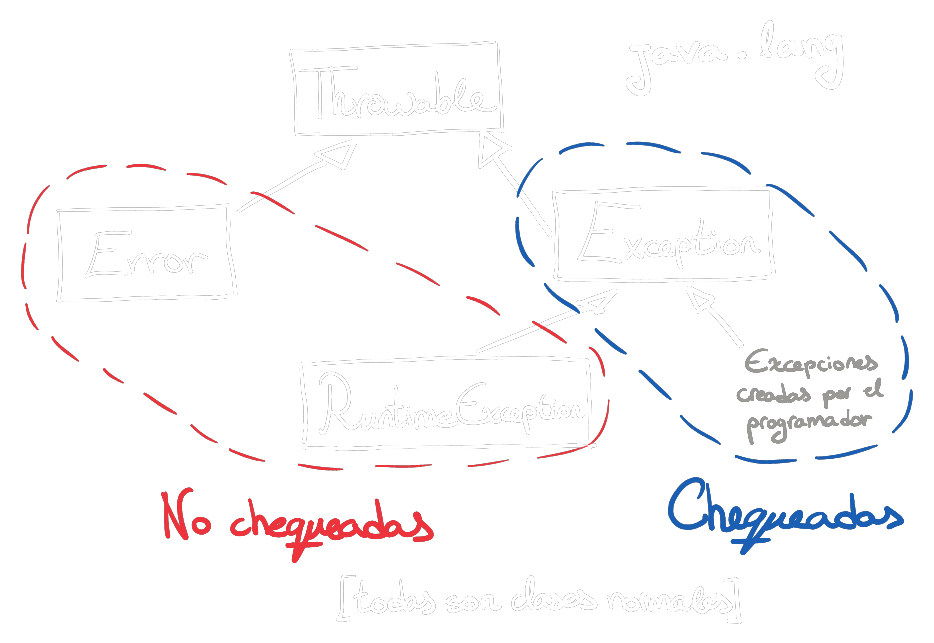 java.lang
Throwable
Error
Exception
RuntimeException
Excepciones
creadas por el
programador
No chequeadas
Chequeadas
[todas son clases normales]